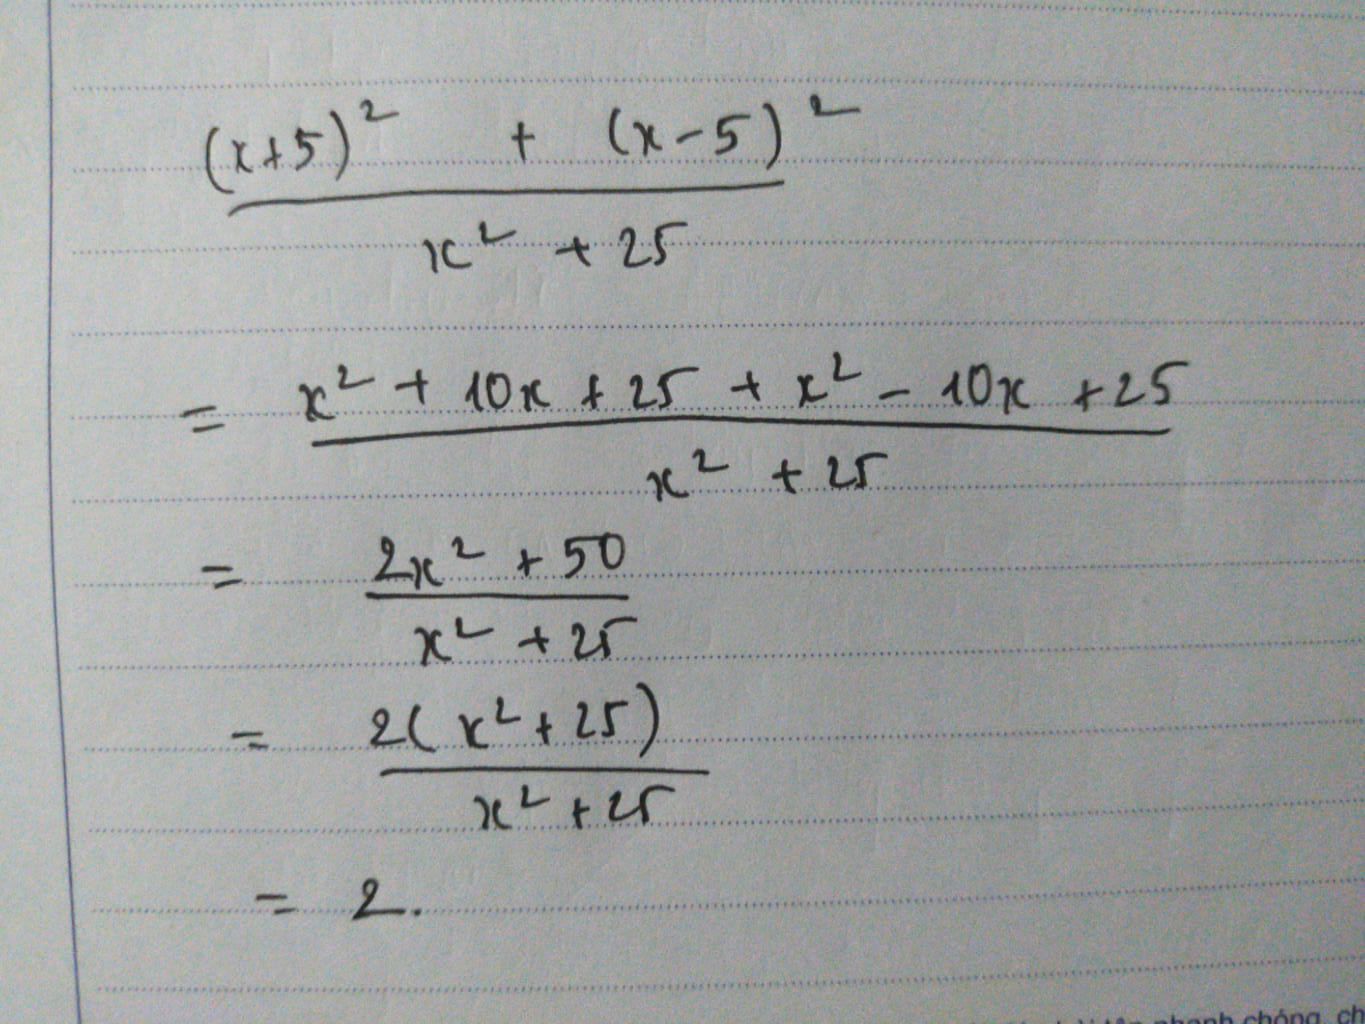 ((x+5)² + (x-5)²) / (x² + 25)
= (x² + 10x + 25 + x² - 10x + 25) / (x² + 25)
= (2x² + 50) / (x² + 25)
= 2(x² + 25) / (x² + 25)
= 2.
nhanh chóng, ch